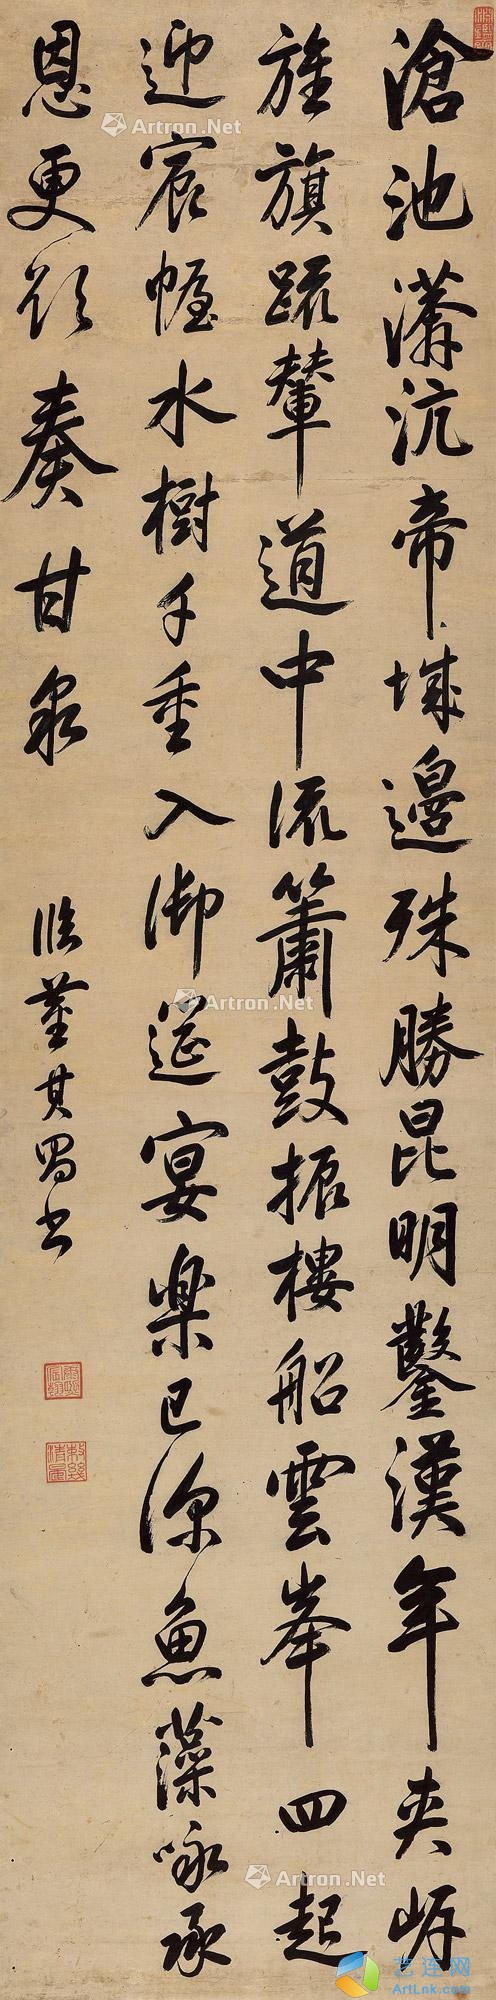 滄池漭沆帝城邊殊勝昆明鑿漢年夾岸
旌旗疏輦道中流簫鼓振樓船雲峯四起
迎宸幄水樹千重入御筵宴樂已深魚藻咏承
恩更欲奏甘泉
臨董其昌書
Artron.Net
Artron.Net
Artron.Net
Artron.Net
艺连网
ArtLnk.com